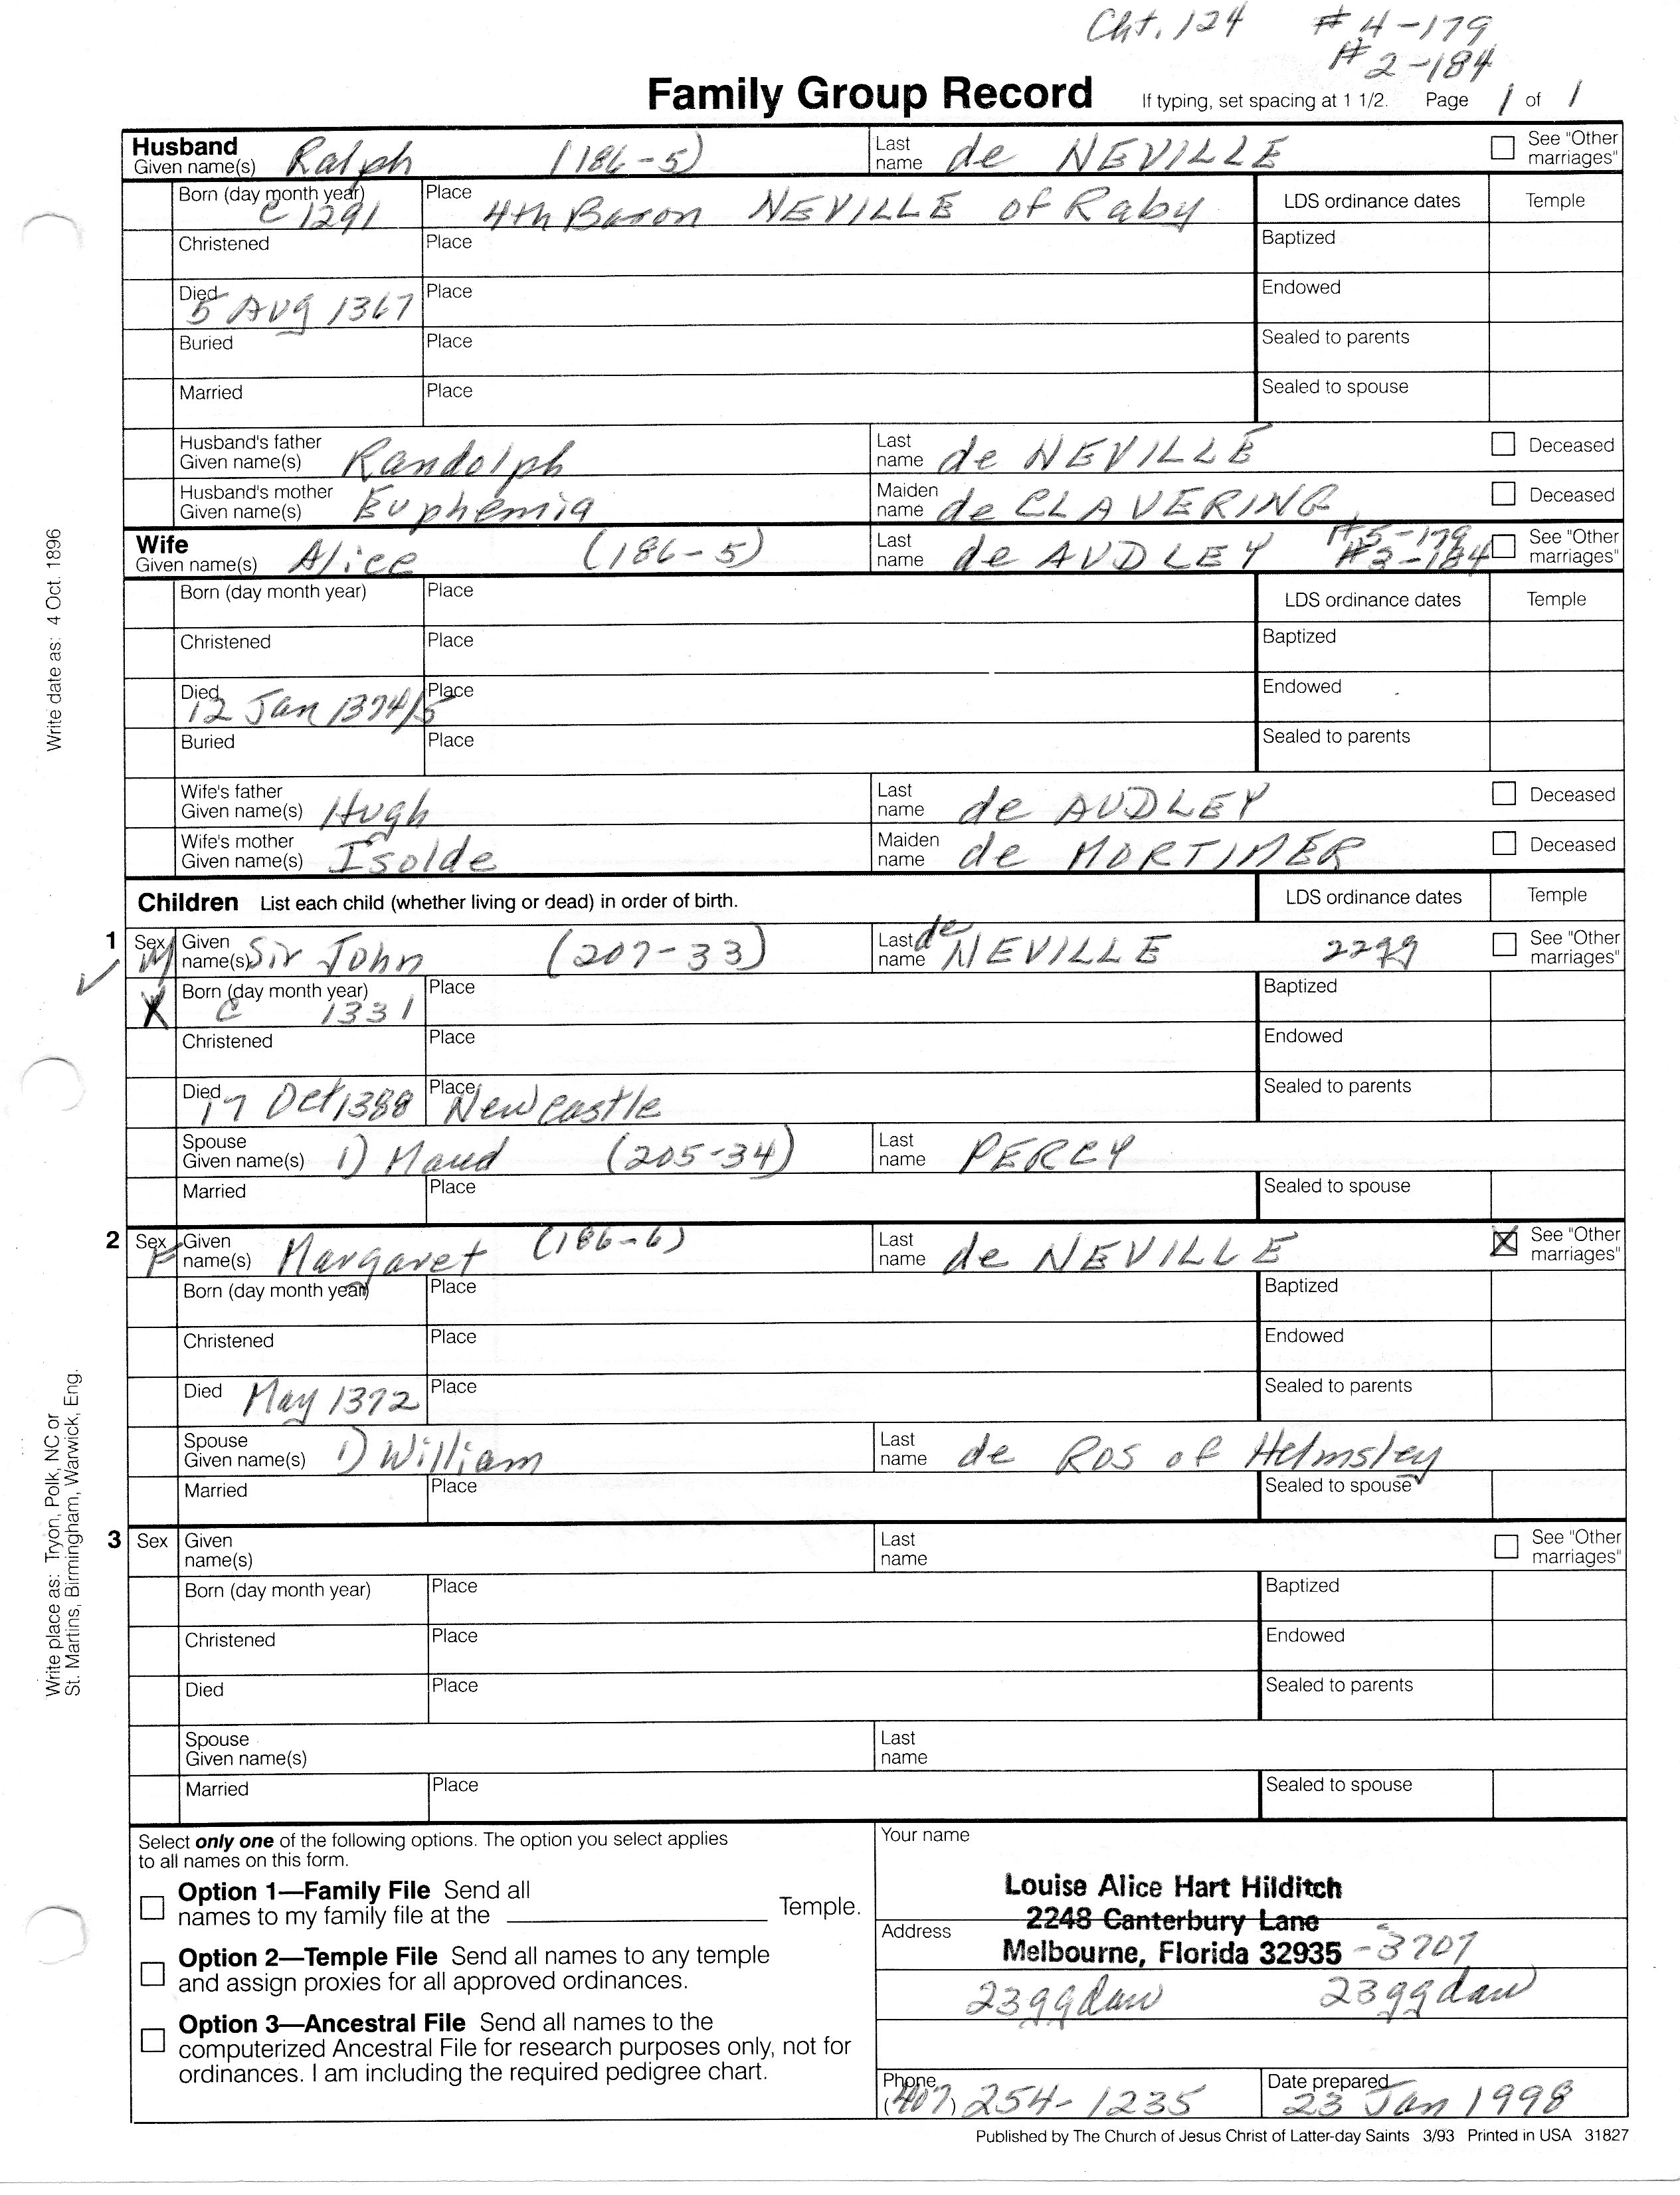 Cht. 124 # 4-179
# 2-184
Family Group Record If typing, set spacing at 1 1/2. Page 1 of 1
Husband
Given name(s) Ralph (186-5) Last name de NEVILLE See "Other marriages"
Born (day month year) C 1291 Place 4th Baron NEVILLE of Raby LDS ordinance dates Temple
Christened Place Baptized
Died 5 AUG 1367 Place Endowed
Buried Place Sealed to parents
Married Place Sealed to spouse
Husband's father Given name(s) Randolph Last name de NEVILLE Deceased
Husband's mother Given name(s) Euphemia Maiden name de CLAVERING Deceased
Wife
Given name(s) Alice (186-5) Last name de AUDLEY #5-179 #3-184 See "Other marriages"
Born (day month year) Place LDS ordinance dates Temple
Christened Place Baptized
Died 12 Jan 1374/5 Place Endowed
Buried Place Sealed to parents
Wife's father Given name(s) Hugh Last name de AUDLEY Deceased
Wife's mother Given name(s) Isolde Maiden name de MORTIMER Deceased
Children List each child (whether living or dead) in order of birth. LDS ordinance dates Temple
1 Sex M Given name(s) Sir John (207-33) Last name de NEVILLE 22gg See "Other marriages"
X Born (day month year) C 1331 Place Baptized
Christened Place Endowed
Died 17 Oct 1388 Place Newcastle Sealed to parents
Spouse Given name(s) 1) Maud (205-34) Last name PERCY
Married Place Sealed to spouse
2 Sex F Given name(s) Margaret (186-6) Last name de NEVILLE X See "Other marriages"
Born (day month year) Place Baptized
Christened Place Endowed
Died May 1372 Place Sealed to parents
Spouse Given name(s) 1) William Last name de ROS of Helmsley
Married Place Sealed to spouse
3 Sex Given name(s) Last name See "Other marriages"
Born (day month year) Place Baptized
Christened Place Endowed
Died Place Sealed to parents
Spouse Given name(s) Last name
Married Place Sealed to spouse
Select only one of the following options. The option you select applies
to all names on this form.
Option 1—Family File Send all
names to my family file at the Temple.
Option 2—Temple File Send all names to any temple
and assign proxies for all approved ordinances.
Option 3—Ancestral File Send all names to the
computerized Ancestral File for research purposes only, not for
ordinances. I am including the required pedigree chart.
Your name
Louise Alice Hart Hilditch
2248 Canterbury Lane
Address Melbourne, Florida 32935 -3707
23ggdau 23ggdau
Phone (407) 254-1235 Date prepared 23 Jan 1998
Published by The Church of Jesus Christ of Latter-day Saints 3/93 Printed in USA 31827
Write date as: 4 Oct. 1896
Write place as: Tryon, Polk, NC or
St. Martins, Birmingham, Warwick, Eng.